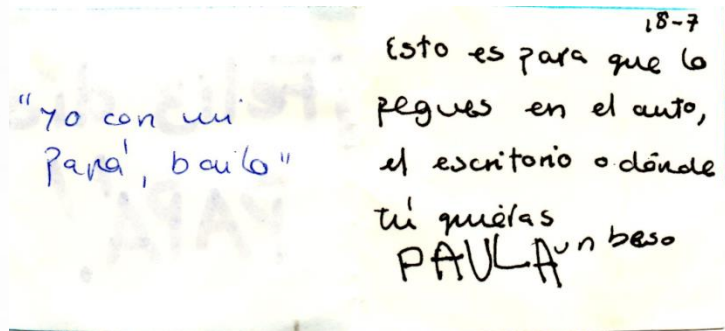 "Yo con mi
Papá, bailo"
18-7
Esto es para que lo
pegues en el auto,
el escritorio o dónde
tú quiéras
un beso
PAULA